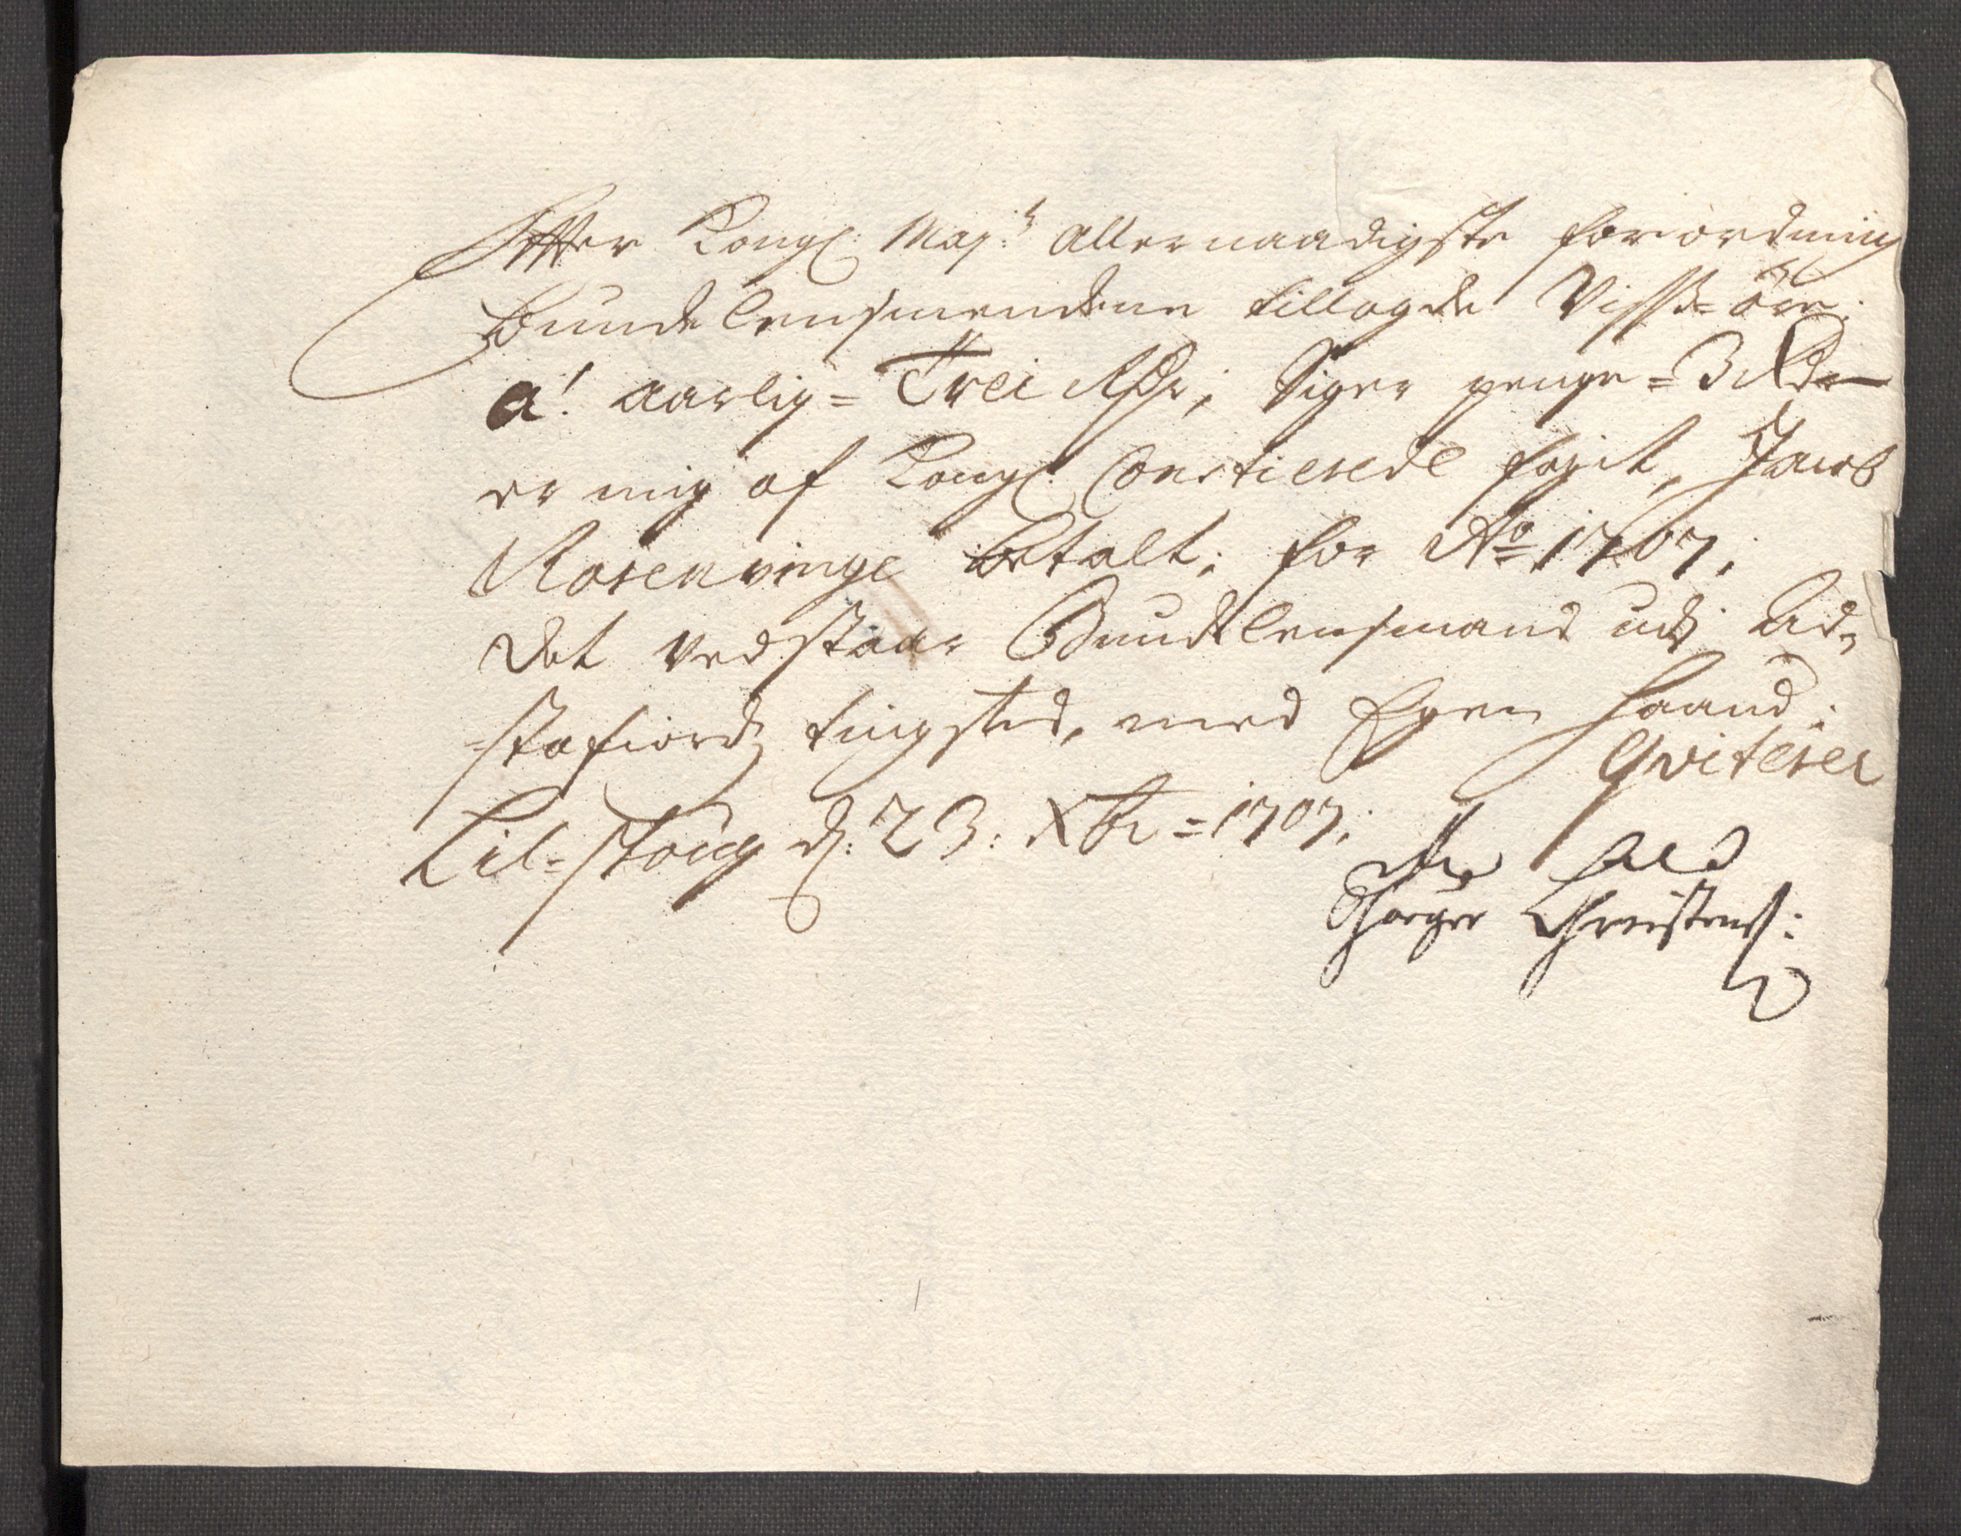 Efter Kongl: Maj:ts Allernaadigste forordning
Bunde lensmendene tillagde Visse=öre:
a! aarlig= Trei Rdr; Siger penge= 3 Rdr
er mig af Kongl: Constierede fogit, Jacob
Rosenvinge betalt; for Ao 1707;
Det vedstaar Bundelensmand udj Ud=
=stafiords tingsted, med Egen haand;
Qviterer
Lil=stong d: 23: Xbr = 1707;
Christens: